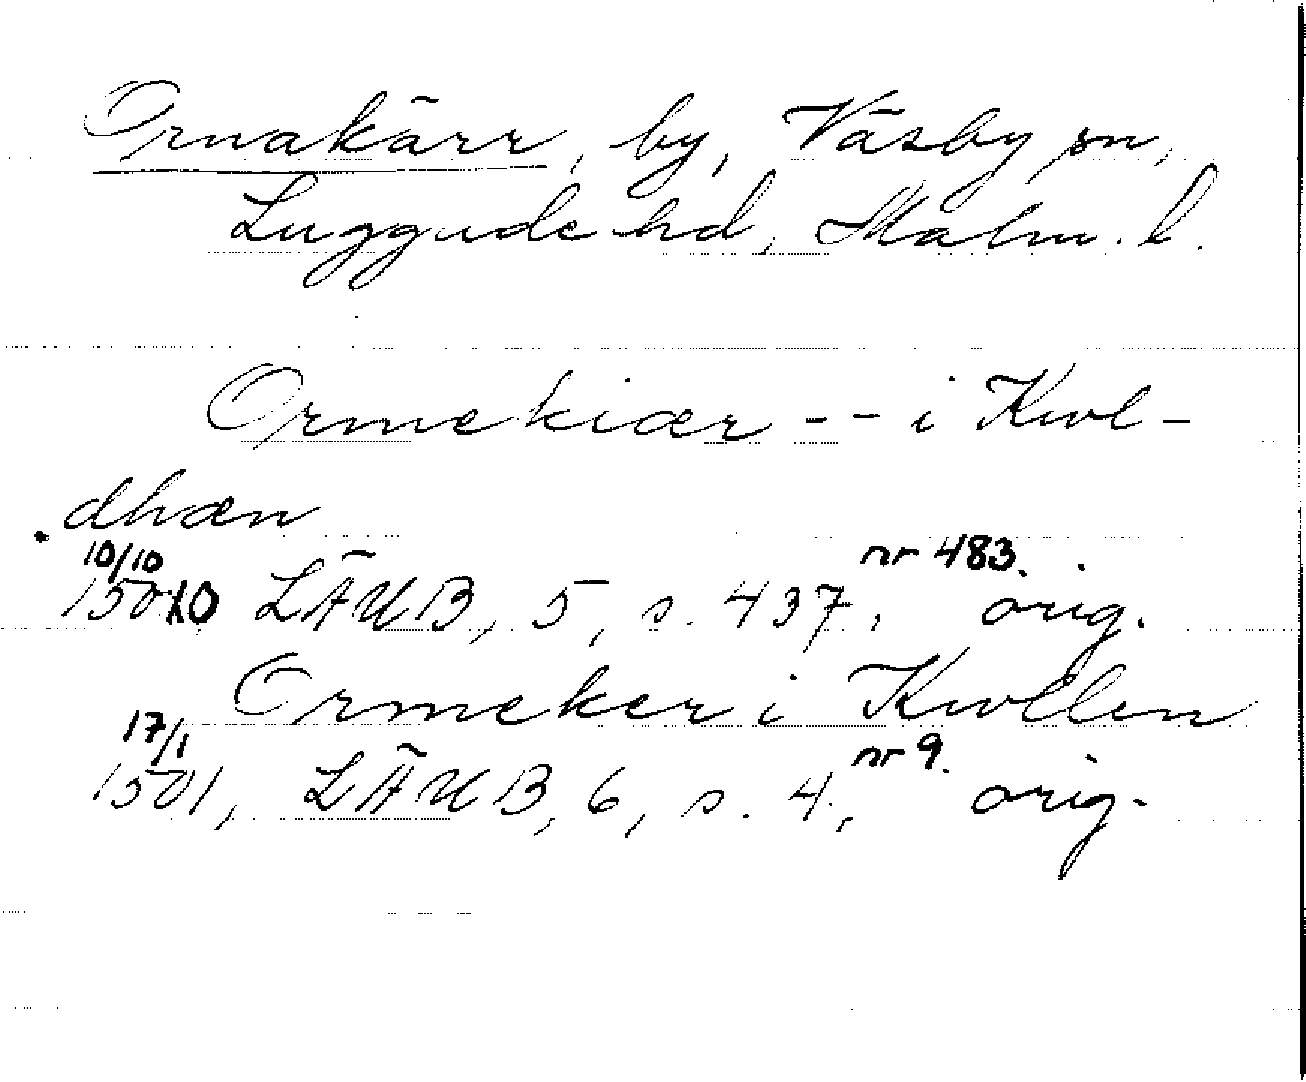 Ornakärr, by, Väsby sn,
Luggude hd, Malm. l.
Ormekiær -- i Kwl-
dhæn
10/10 nr 483.
1500 LÄUB, 5, s. 437, orig.
Ormeker i Kwllen
17/1 nr 9.
1501, LÄUB, 6, s. 4, orig.